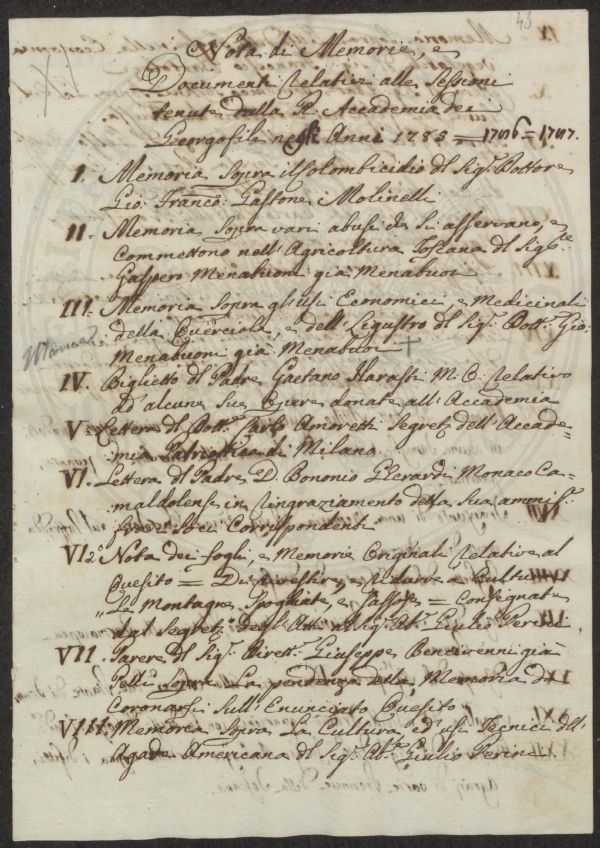 43
Nota di Memorie, e
Documenti relativi alle Sessioni
tenute dalla R. Accademia dei
Georgofili negli Anni 1785 = 1786 = 1787.
I. Memoria sopra il Colombicidio del Sig.r Dottore
Gio: Franco: Gastone Molinelli
II. Memoria sopra varj abusi che si osservano, e
Commettono nell'Agricoltura Toscana del Sig.r
Gaspero Menabuoni già Menabuoi
III. Memoria sopra gl'usi Economici, e Medicinali
della Querciola, e dell'Ligustro del Sig.r Dott.r Gio:
Manca
Menabuoni già Menabuoi +
IV. Biglietto del Padre Gaetano Harasti M. O. relativo
ad alcune sue Opere donate all'Accademia
V. Lettera del Dott.r Carlo Amoretti Segret.o dell'Accade=
mia Patriotica di Milano
VI. Lettera del Padre D. Bononio Gherardi Monaco Ca=
maldolense in ringraziamento della sua ammiss.e
fra i Soci Corrispondenti
VI 2.o Nota dei fogli, e Memorie Originali relative al
Quesito = Di rivestire, e ridurre a Cultura
Le Montagne Spogliate, e Sassose = Consegnate
dal Segret.o degl'Atti al Sig.r Ab.e Giulio Perini
VII. Parere del Sig.r Dirett.r Giuseppe Bencivenni già
Pelli sopra La pendenza della Memoria da
Coronarsi sull'Enunciato Quesito
VIII. Memoria sopra La Cultura, ed usi Tecnici dell'
Agave Americana del Sig.r Ab.e Giulio Perini.